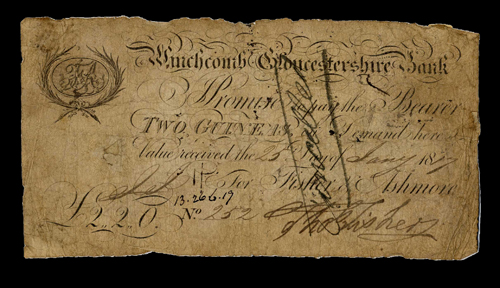 Winchcomb Gloucestershire Bank
I Promise to Pay the Bearer
TWO GUINEAS on Demand here
Value received the 25 Day of Jany
For Fisher & Ashmore
13.266.19
£2.2.0. No 252 Tho Fisher
Cancelled